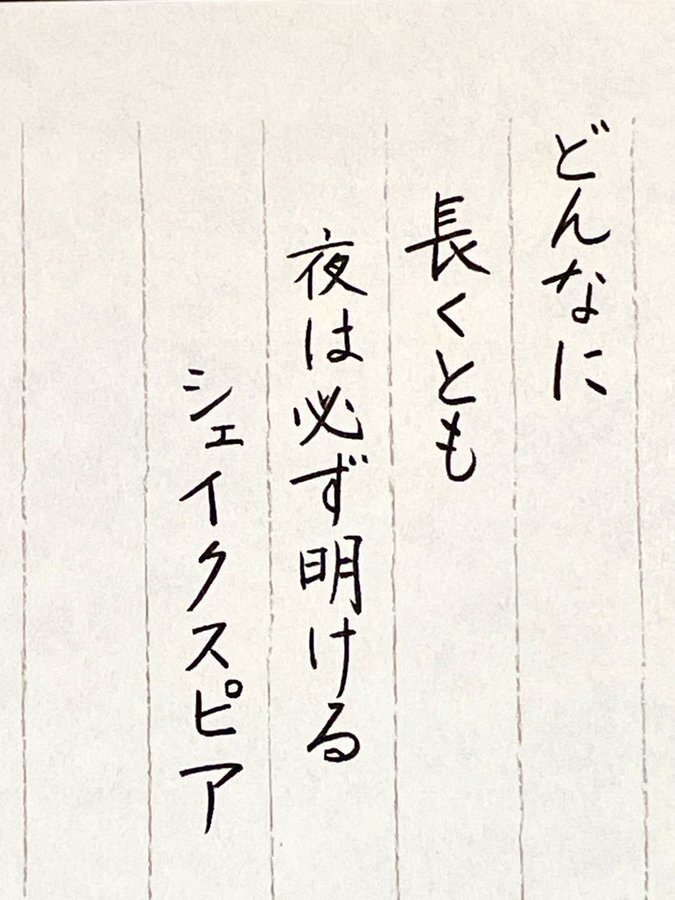 どんなに
長くとも
夜は必ず明ける
シェイクスピア